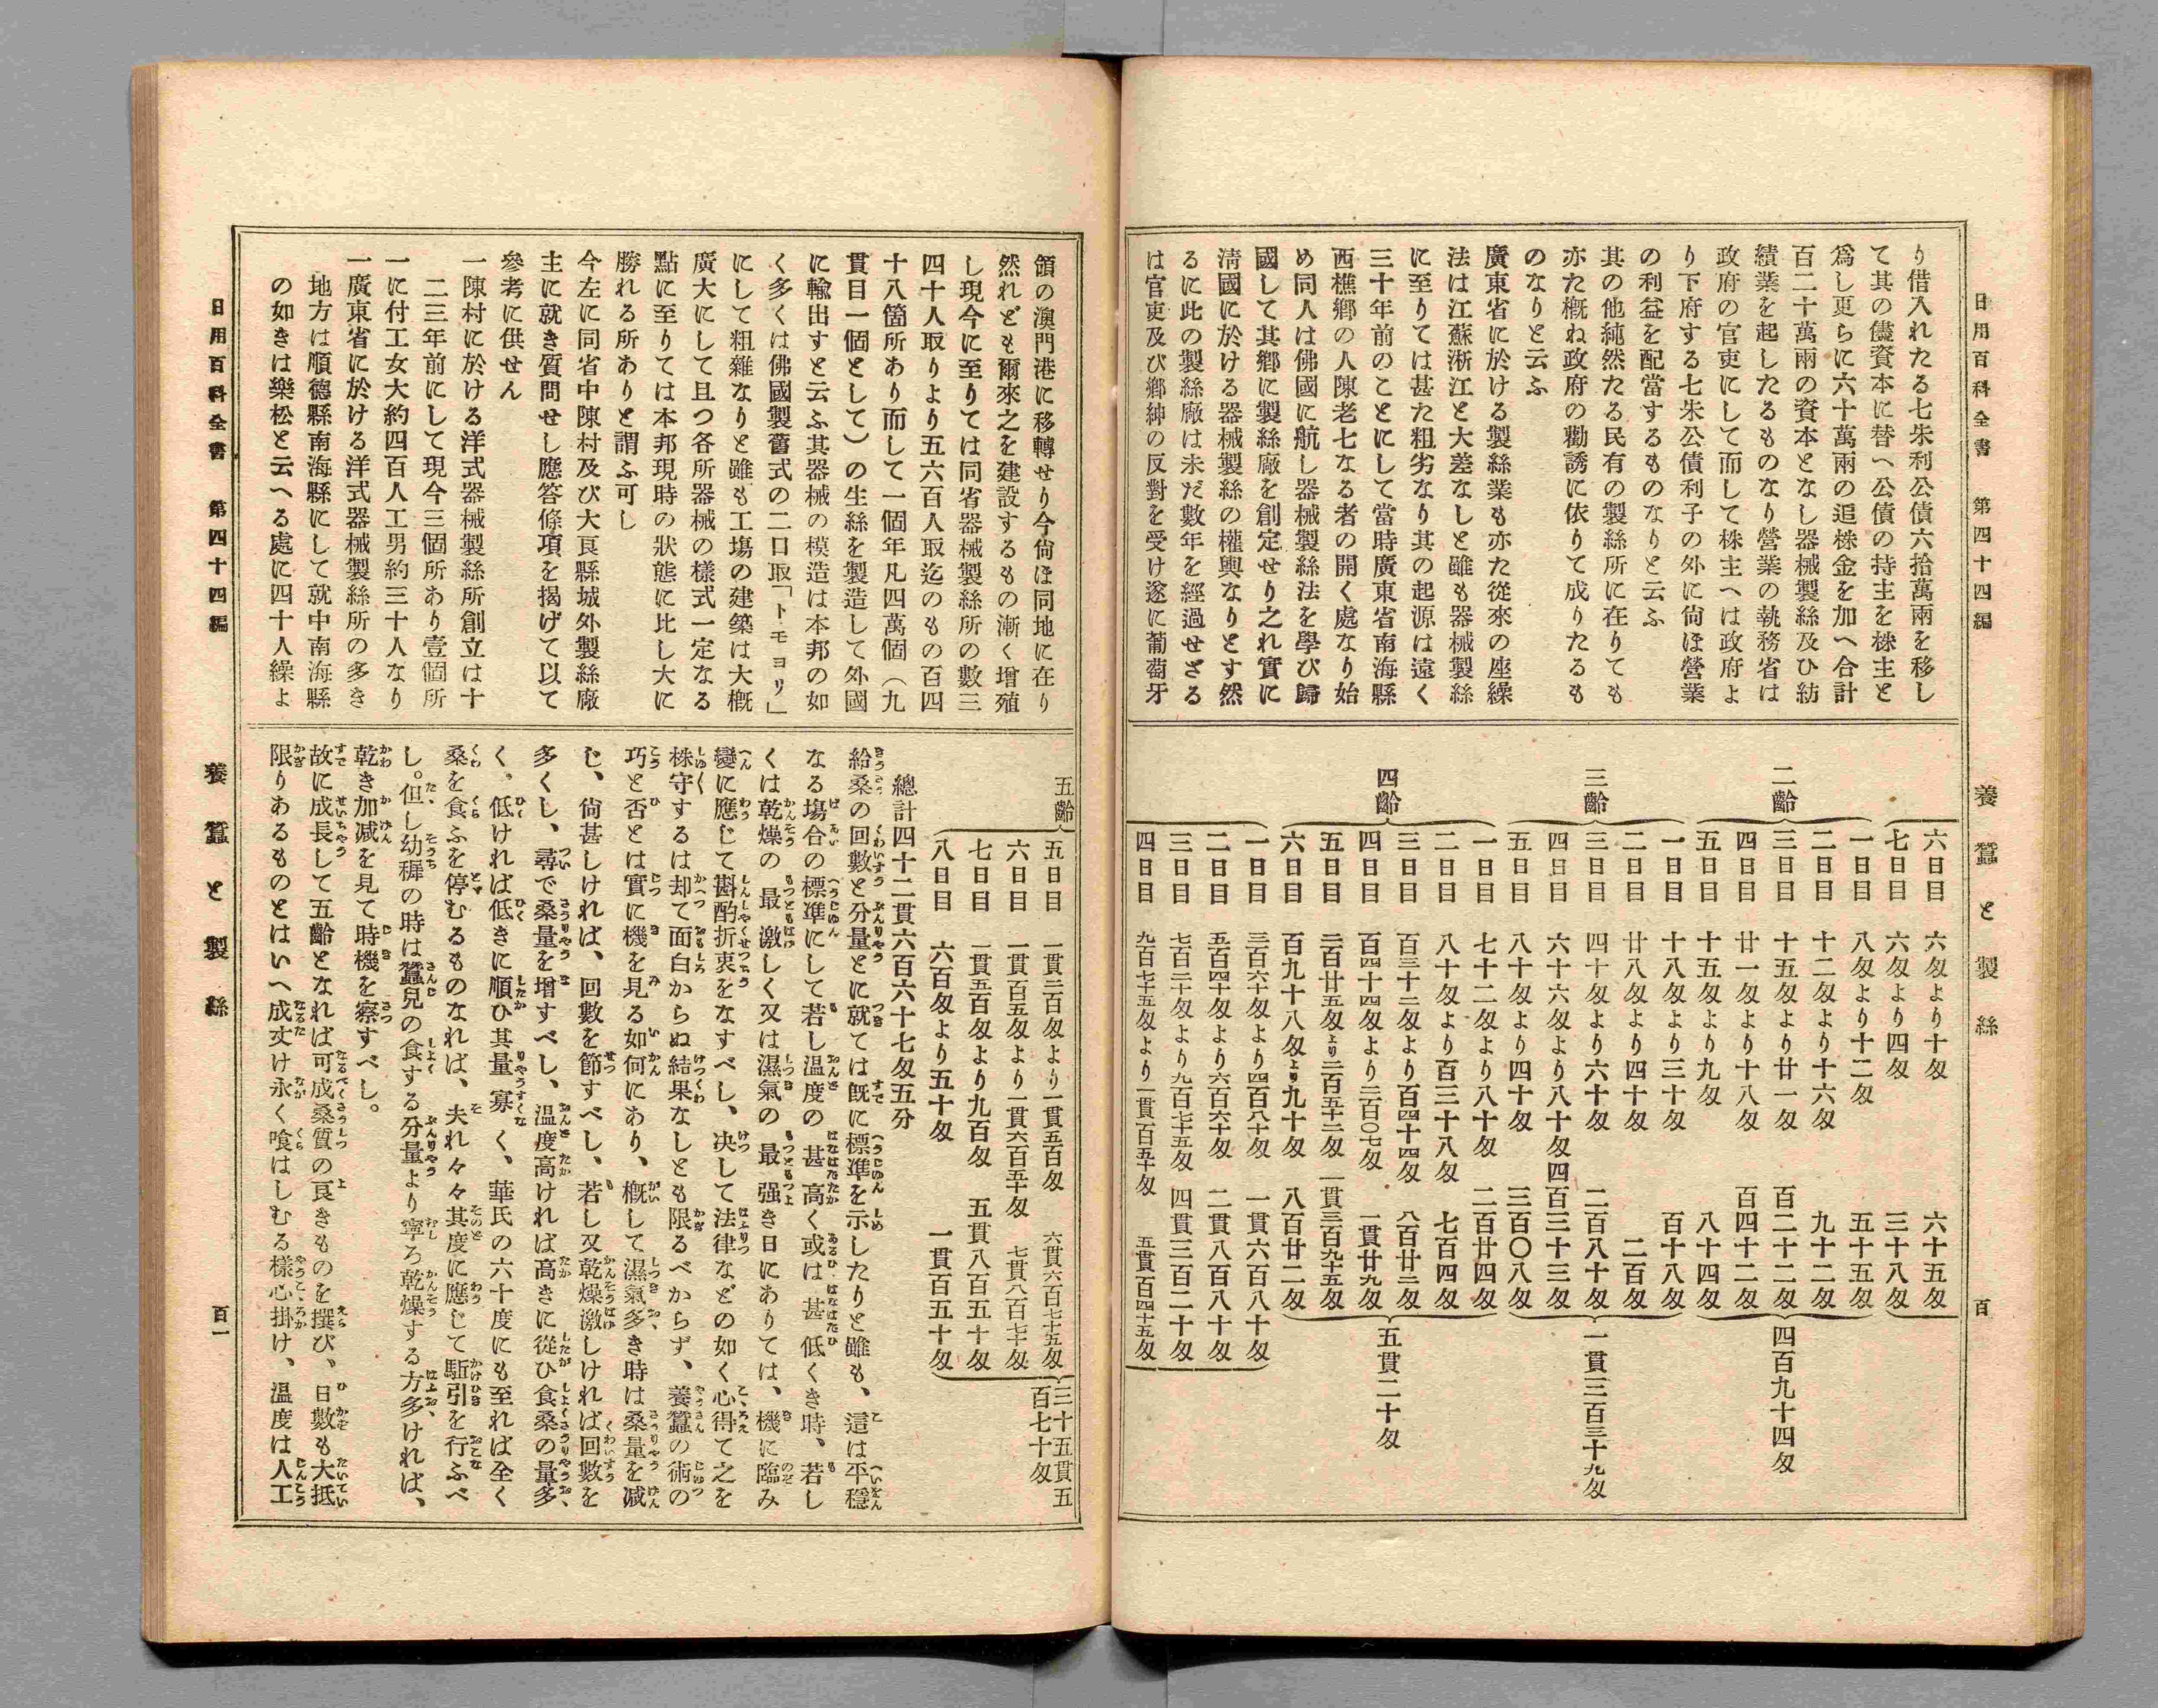 日用百科全書　第四十四編　養蠶と製絲　百
り借入れたる七朱利公債六拾萬兩を移し
て其の儘資本に替へ公債の持主を株主と
爲し更らに六十萬兩の追株金を加へ合計
百二十萬兩の資本となし器械製絲及ひ紡
績業を起したるものなり營業の執務省は
政府の官吏にして而して株主へは政府よ
り下府する七朱公債利子の外に尙ほ營業
の利益を配當するものなりと云ふ
其の他純然たる民有の製絲所に在りても
亦た槪ね政府の勸誘に依りて成りたるも
のなりと云ふ
廣東省に於ける製絲業も亦た從來の座繰
法は江蘇淅江と大差なしと雖も器械製絲
に至りては甚た粗劣なり其の起源は遠く
三十年前のことにして當時廣東省南海縣
西樵鄕の人陳老七なる者の開く處なり始
め同人は佛國に航し器械製絲法を學び歸
國して其鄕に製絲廠を創定せり之れ實に
淸國に於ける器械製絲の權輿なりとす然
るに此の製絲廠は未だ數年を經過せざる
は官吏及び鄕紳の反對を受け遂に葡萄牙
六日目　六匁より十匁　六十五匁
七日目　六匁より四匁　三十八匁
二齡
一日目　八匁より十二匁　五十五匁
二日目　十二匁より十六匁　九十二匁
三日目　十五匁より廿一匁　百二十二匁
四日目　廿一匁より十八匁　百四十二匁
五日目　十五匁より九匁　八十四匁
四百九十四匁
三齡
一日目　十八匁より三十匁　百十八匁
二日目　廿八匁より四十匁　二百匁
三日目　四十匁より六十匁　二百八十匁
四日目　六十六匁より八十匁　四百三十三匁
五日目　八十匁より四十匁　三百〇八匁
一貫三百三十九匁
四齡
一日目　七十二匁より八十匁　二百廿四匁
二日目　八十匁より百三十八匁　七百四匁
三日目　百三十二匁より百四十四匁　八百廿二匁
四日目　百四十四匁より二百〇七匁　一貫廿九匁
五日目　二百廿五匁より二百五十二匁　一貫三百九十五匁
六日目　百九十八匁より九十匁　八百廿二匁
五貫二十匁
一日目　三百六十匁より四百八十匁　一貫六百八十匁
二日目　五百四十匁より六百六十匁　二貫八百八十匁
三日目　七百二十匁より九百七十五匁　四貫三百二十匁
四日目　九百七十五匁より一貫百五十匁　五貫百四十五匁
領の澳門港に移轉せり今尙ほ同地に在り
然れども爾來之を建設するもの漸く增殖
し現今に至りては同省器械製絲所の數三
四十人取りより五六百人取迄のもの百四
十八箇所あり而して一個年凡四萬個（九
貫目一個として）の生絲を製造して外國
に輸出すと云ふ其器械の模造は本邦の如
く多くは佛國製舊式の二口取「トモヨリ」
にして粗雜なりと雖も工塲の建築は大槪
廣大にして且つ各所器械の樣式一定なる
點に至りては本邦現時の狀態に比し大に
勝れる所ありと謂ふ可し
今左に同省中陳村及び大良縣城外製絲廠
主に就き質問せし應答條項を揭げて以て
參考に供せん
一陳村に於ける洋式器械製絲所創立は十
二三年前にして現今三個所あり壹個所
一に付工女大約四百人工男約三十人なり
一廣東省に於ける洋式器械製絲所の多き
地方は順德縣南海縣にして就中南海縣
の如きは樂松と云へる處に四十人繰よ
五齡
五日目　一貫二百匁より一貫五百匁　六貫六百七十五匁
六日目　一貫百五匁より一貫六百五十匁　七貫八百七十匁
七日目　一貫五百匁より九百匁　五貫八百五十匁
八日目　六百匁より五十匁　一貫百五十匁
三十五貫五百七十匁
總計四十二貫六百六十七匁五分
給桑の回數と分量とに就ては旣に標準を示したりと雖も、這は平穩
なる塲合の標準にして若し溫度の甚高く或は甚低くき時、若し
くは乾燥の最激しく又は濕氣の最强き日にありては、機に臨み
變に應じて斟酌折衷をなすべし、決して法律などの如く心得て之を
株守するは却て面白からぬ結果なしとも限るべからず、養蠶の術の
巧と否とは實に機を見る如何にあり、槪して濕氣多き時は桑量を減
じ、尙甚しければ、回數を節すべし、若し又乾燥激しければ回數を
多くし、尋で桑量を增すべし、溫度高ければ高きに從ひ食桑の量多
く。低ければ低きに順ひ其量寡く、華氏の六十度にも至れば全く
桑を食ふを停むるものなれば、夫れ々々其度に應じて駈引を行ふべ
し。但し幼穉の時は蠶兒の食する分量より寧ろ乾燥する方多ければ、
乾き加減を見て時機を察すべし。
故に成長して五齡となれば可成桑質の良きものを撰び、日數も大抵
限りあるものとはいへ成丈け永く喰はしむる樣心掛け、溫度は人工
日用百科全書　第四十四編　養蠶と製絲　百一